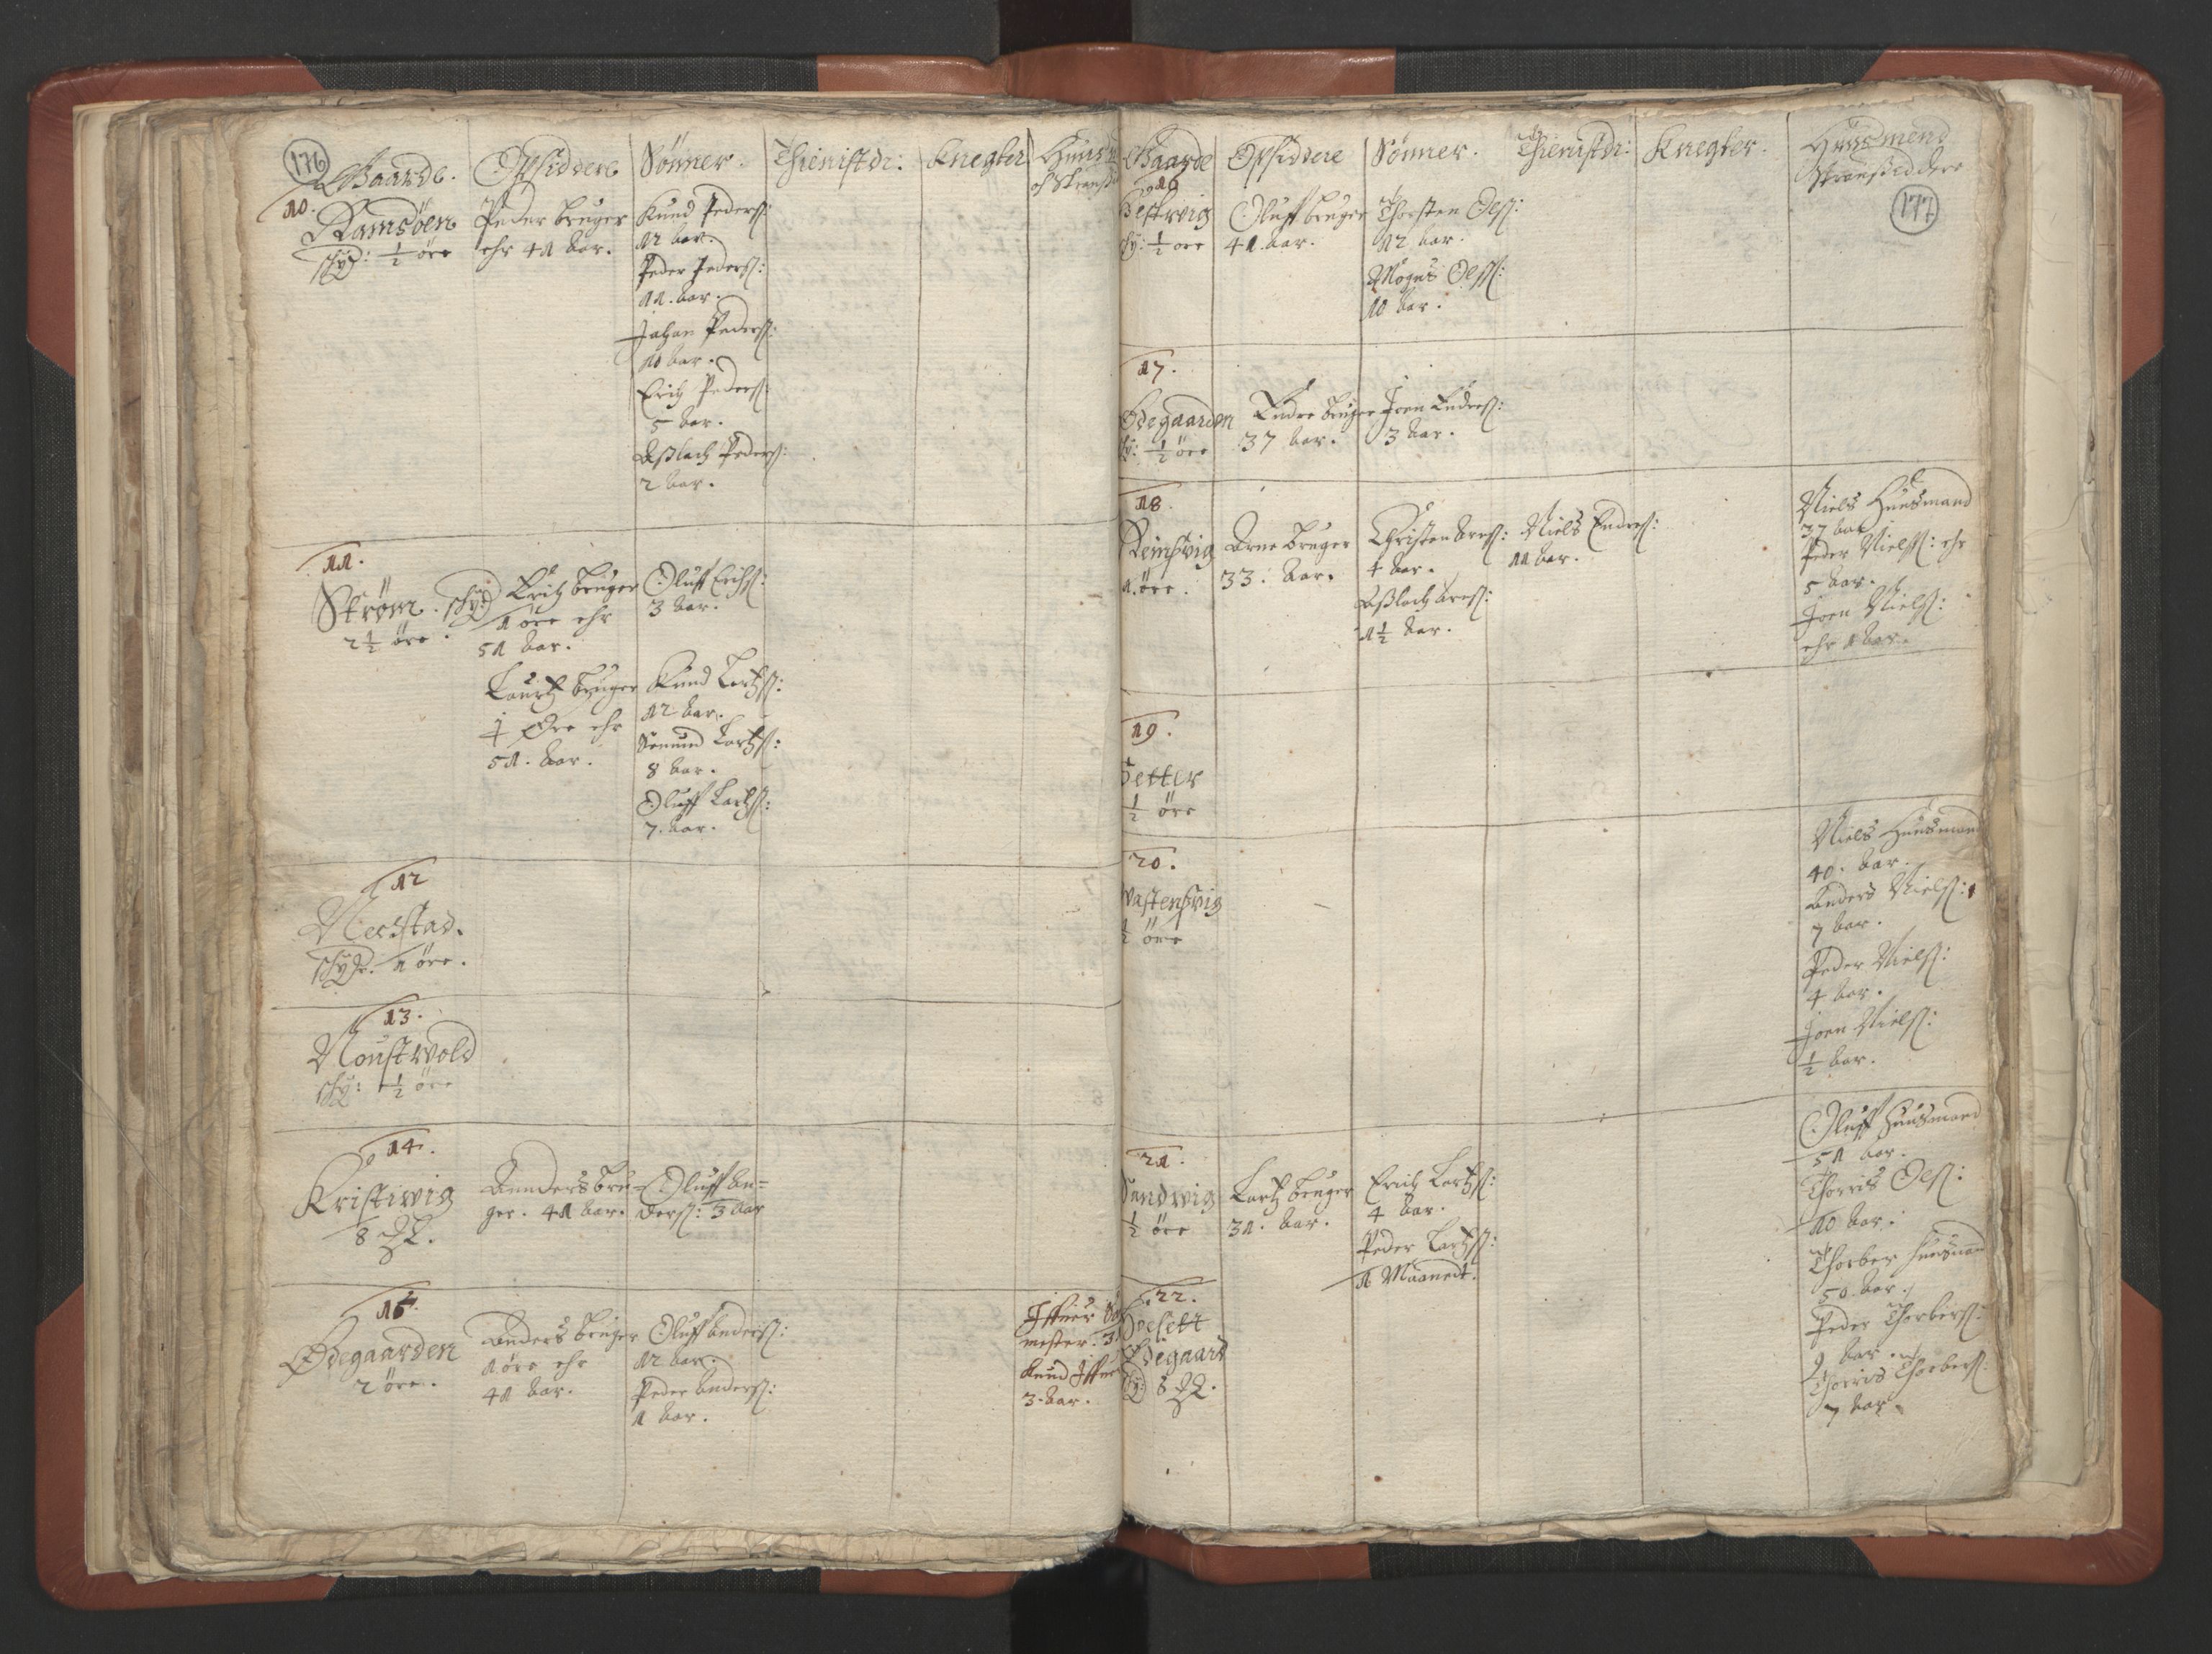 176
Gaarde. Opsiddere Sønner. Thienistdr: Knegter
10.
Ramsøen
schyd: ½ øre
Peder bruger
ehr 41 aar.
Knud Peders:
12 aar.
Peder Peders:
11. aar.
Johan Peders:
10 aar.
Erich Peders:
5 aar.
Aslach Peders:
2 aar.
11.
Strøm. schyd
2½ øre.
Erich bruger
1 øre ehr
51 aar.
Oluff Erichs:
3 aar.
Lauritz bruger
1 Øre ehr
51. aar.
Knud Lartzs:
12 aar.
Sømund Lartzs:
8 aar.
Oluff Lartzs:
7. aar.
12
schyd. 1 øre.
13.
Noustwold
schy: ½ øre
14.
Kristwig
Annders bru=
ger. 41 aar.
Oluff An=
ders: 3 aar
15.
Ødegaarden
2 øre.
Anders bruger
1 øre ehr
41 aar.
Oluff Anders:
12 aar.
Peder Anders:
1 aar.
3. aar.
177
Gaarde Opsiddere Sønner. Thienistdr: Knegter. Huusmend
16
schy: ½ øre
Oluff bruger
41 aar.
Thorsten Ols:
12 aar.
Mogns Ols:
10 aar.
17.
Ødegaarden
½ øre
Endre bruger
37 aar.
Joen Endres:
3 aar.
18.
Reinswig
1. øre.
Arne bruger
33. aar.
Christen Ares:
4 aar.
Aslach Ares:
1½ aar.
Niels Endres:
11 aar.
Niels Huusmand
37 aar
Peder Niels: ehr
5 aar.
Joen Niels:
ehr 1 aar.
19.
Setter
½ øre
20.
½ øre
Niels Huusmand
40. aar.
Anders Niels:
7 aar.
Peder Niels:
4 aar.
Joen Niels:
½ aar.
21.
Sandwig
½ øre
Lartz bruger
31. aar.
Erich Lartzs:
4 aar.
Peder Lartzs:
1 Maanet.
Oluff Huusmand
51 aar.
Thorris Ols:
10 aar.
Thorber Huusmand
50 aar.
Peder Thorbers:
9 aar.
Thorris Thorbers:
7 aar.
22.
Ødegaard